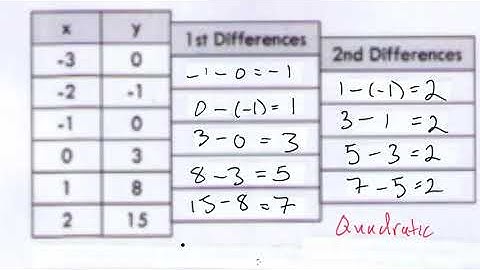 x y 1st Differences 2nd Differences
-3 0
-1-0=-1
-2 -1
1-(-1)=2
0-(-1)=1
-1 0
3-1 =2
3-0=3
0 3
5-3=2
8-3=5
1 8
7-5=2
15-8=7
2 15
Quadratic